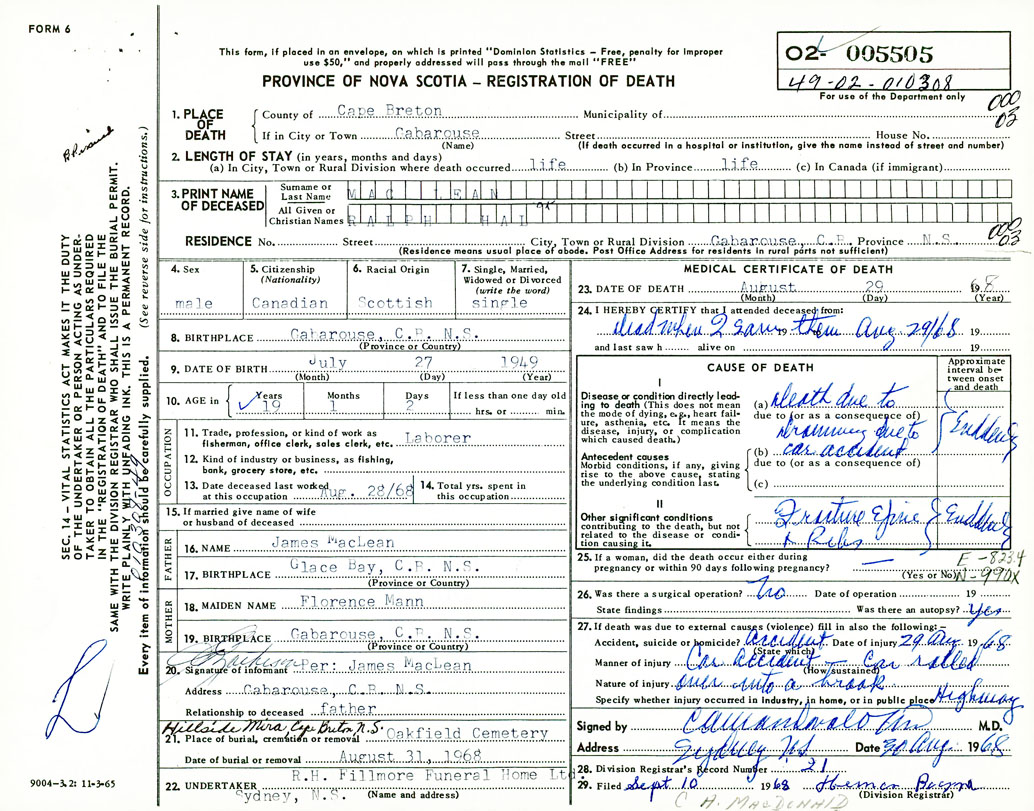 FORM 6
This form, if placed in an envelope, on which is printed "Dominion Statistics – Free, penalty for improper
use $50," and properly addressed will pass through the mail "FREE"
PROVINCE OF NOVA SCOTIA – REGISTRATION OF DEATH
02- 005505
49-02-010308
For use of the Department only
000
03
SEC. 14 – VITAL STATISTICS ACT MAKES IT THE DUTY
OF THE UNDERTAKER OR PERSON ACTING AS UNDER-
TAKER TO OBTAIN ALL THE PARTICULARS REQUIRED
IN THE "REGISTRATION OF DEATH" AND TO FILE THE
SAME WITH THE DIVISION REGISTRAR WHO SHALL ISSUE THE BURIAL PERMIT.
WRITE PLAINLY WITH UNFADING INK. THIS IS A PERMANENT RECORD.
Every item of information should be carefully supplied. (See reverse side for instructions.)
1. PLACE OF DEATH
County of Cape Breton Municipality of
If in City or Town Gabarouse Street House No.
(Name) (If death occurred in a hospital or institution, give the name instead of street and number)
2. LENGTH OF STAY (in years, months and days)
(a) In City, Town or Rural Division where death occurred life (b) In Province life (c) In Canada (if immigrant)
3. PRINT NAME OF DECEASED
Surname or Last Name MAC LEAN
All Given or Christian Names RALPH HAL
RESIDENCE No. Street City, Town or Rural Division Gabarouse, C.B. Province N.S.
000
03
(Residence means usual place of abode. Post Office Address for residents in rural parts not sufficient)
4. Sex
male
5. Citizenship
(Nationality)
Canadian
6. Racial Origin
Scottish
7. Single, Married,
Widowed or Divorced
(write the word)
single
8. BIRTHPLACE Gabarouse, C.B. N.S.
(Province or Country)
9. DATE OF BIRTH July 27 1949
(Month) (Day) (Year)
10. AGE in Years 19 Months 1 Days 2 If less than one day old
hrs. or min.
OCCUPATION
11. Trade, profession, or kind of work as
fisherman, office clerk, sales clerk, etc. Laborer
12. Kind of industry or business, as fishing,
bank, grocery store, etc.
13. Date deceased last worked
at this occupation Aug. 28/68
14. Total yrs. spent in
this occupation
15. If married give name of wife
or husband of deceased
FATHER
16. NAME James MacLean
17. BIRTHPLACE Glace Bay, C.B. N.S.
(Province or Country)
MOTHER
18. MAIDEN NAME Florence Mann
19. BIRTHPLACE Gabarouse, C.B. N.S.
(Province or Country)
20. Signature of informant Per: James MacLean
Address Gabarouse, C.B. N.S.
Relationship to deceased father
Hillside Mira, Cape Breton, N.S.
21. Place of burial, cremation or removal Oakfield Cemetery
Date of burial or removal August 31, 1968
22. UNDERTAKER R.H. Fillmore Funeral Home Ltd
Sydney, N.S. (Name and address)
9004–3.2: 11-3-65
MEDICAL CERTIFICATE OF DEATH
23. DATE OF DEATH August 29 1968
(Month) (Day) (Year)
24. I HEREBY CERTIFY that I attended deceased from:
dead when I saw them Aug 29/68 19
and last saw h alive on 19
CAUSE OF DEATH
Approximate interval be-
tween onset and death
I
Disease or condition directly lead-
ing to death (This does not mean
the mode of dying, e.g., heart fail-
ure, asthenia, etc. It means the
disease, injury, or complication
which caused death.)
(a) Death due to
due to (or as a consequence of)
Drowning due to
Antecedent causes
Morbid conditions, if any, giving
rise to the above cause, stating
the underlying condition last.
(b) car accident
due to (or as a consequence of)
(c)
Suddenly
II
Other significant conditions
contributing to the death, but not
related to the disease or condi-
tion causing it.
Fracture Spine
& Ribs
Suddenly
25. If a woman, did the death occur either during
pregnancy or within 90 days following pregnancy? —
(Yes or No)
E-8234
N-990X
26. Was there a surgical operation? No Date of operation 19
State findings Was there an autopsy? Yes
27. If death was due to external causes (violence) fill in also the following:–
Accident, suicide or homicide? Accident Date of injury 29 Aug 1968
(State which)
Manner of injury Car accident – car rolled
(How sustained)
Nature of injury over into a brook
Specify whether injury occurred in Industry, in home, or in public place Highway
Signed by M.D.
Address Sydney NS Date 30 Aug 1968
28. Division Registrar's Record Number 21
29. Filed Sept 10 1968
(Division Registrar)
C A MacDONALD